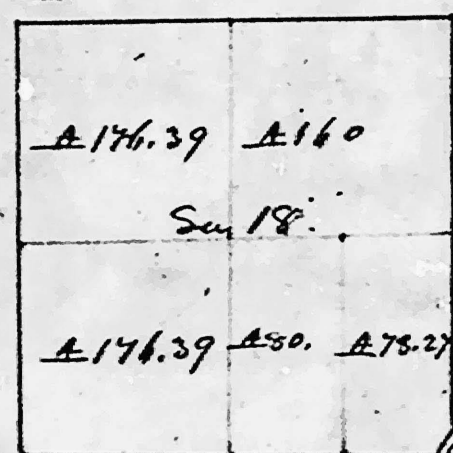 A 176.39 A 160
Sec 18
A 176.39 A 80. A 78.27